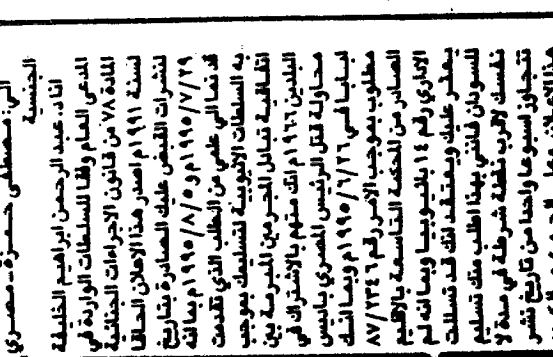 الى: مصطفى حمزة - مصري
الجنسية
انا د. عبد الرحمن ابراهيم الخليفة
المدعي العام وفقا للسلطات الواردة في
المادة ٧٨ من قانون الاجراءات الجنائية
لسنة ١٩٩١م اصدر هذا الاعلان الحاقا
لنشرات القبض عليك الصادرة بتاريخ
١٩٩٥/٧/٢٩م و١٩٩٥/٨/٥م بما انه
قد نما الي علمي من الطلب الذي تقدمت
به السلطات الاثيوبية لتسليمك بموجب
اتفاقية تبادل المجرمين المبرمة بين
البلدين ١٩٦٦م انك متهم بالاشتراك في
محاولة قتل الرئيس المصري باديس
ابابا في ١٩٩٥/٦/٢٦م وبما انك
مطلوب بموجب الامر رقم ٨٧/٢٣٤٦
الصادر من المحكمة التاسعة بالاقليم
الاداري رقم ١٤ باثيوبيا وبما انه لم
يعثر عليك ويعتقد انك قد تسللت
للسودان فانني بهذا اطلب منك تسليم
نفسك لاقرب نقطة شرطة في مدة لا
تتجاوز اسبوعا واحدا من تاريخ نشر
هذا الاعلان